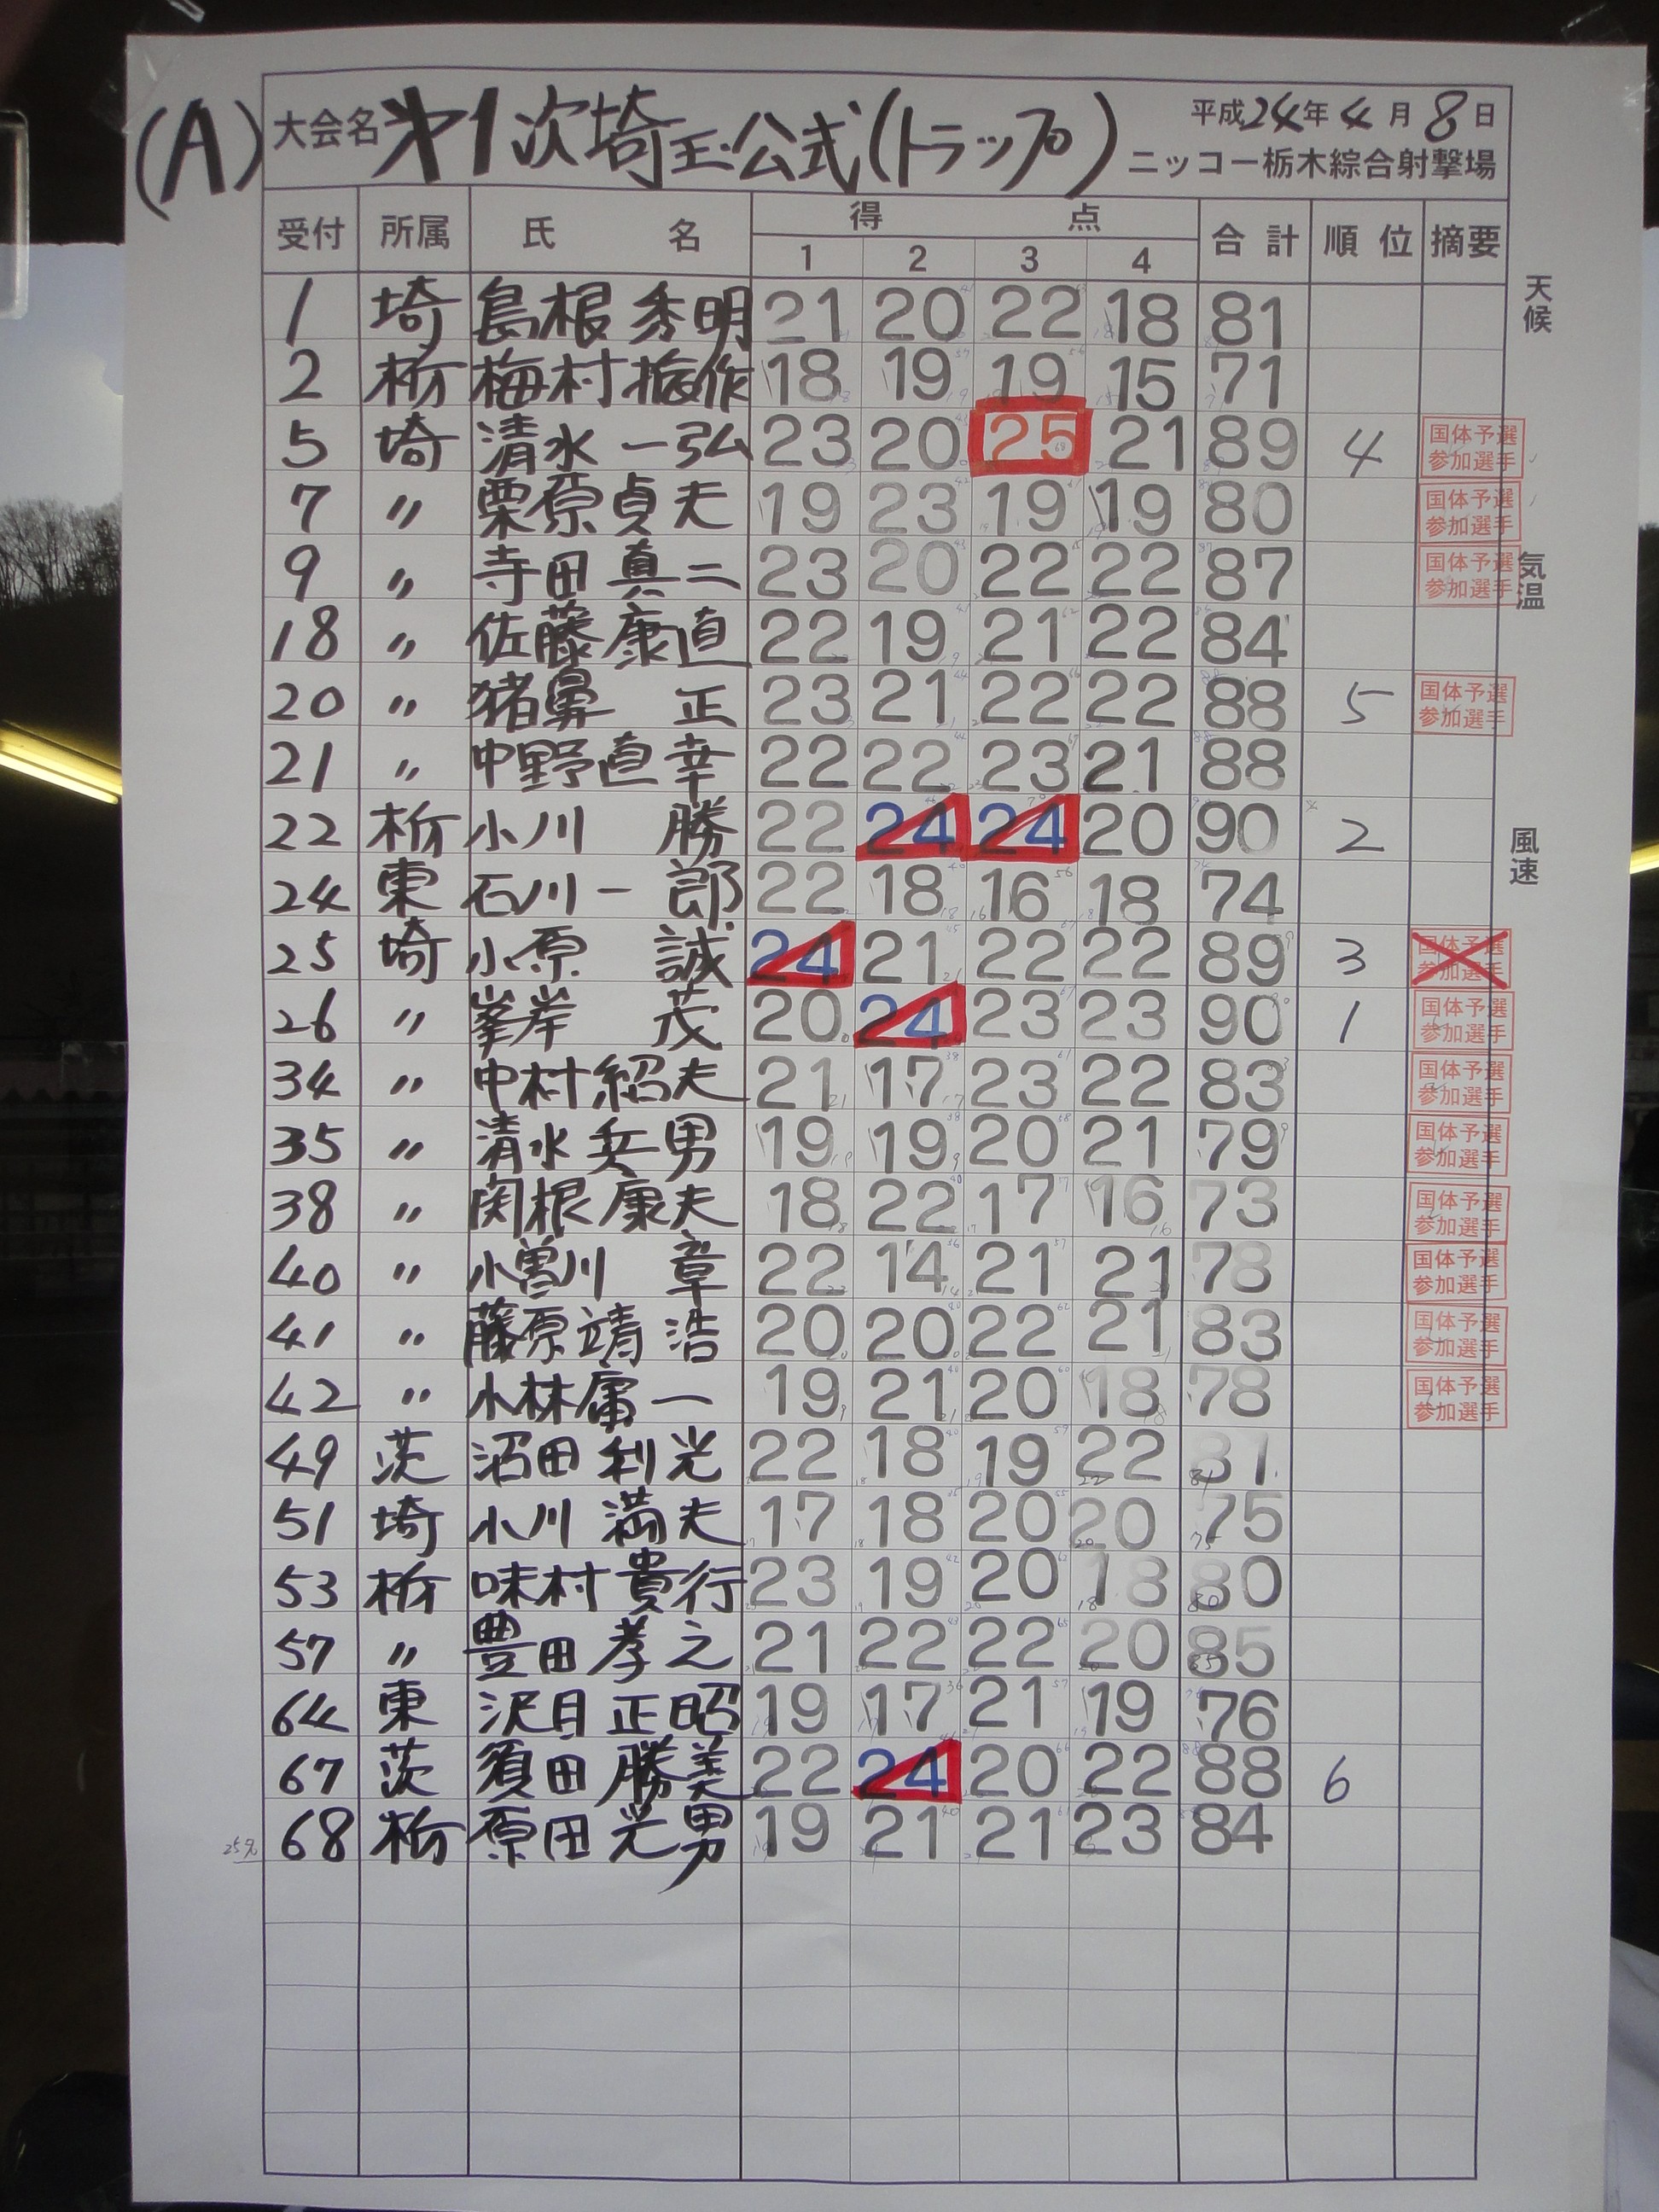 (A) 大会名 第1次埼玉公式(トラップ) 平成24年4月8日
ニッコー栃木綜合射撃場
受付 所属 氏 名 得 点 合計 順位 摘要
1 2 3 4
天候
1 埼 島根秀明 21 20 22 18 81
2 栃 梅村 18 19 19 15 71
5 埼 清水一弘 23 20 25 21 89 4 国体予選 参加選手
7 〃 栗原貞夫 19 23 19 19 80 国体予選 参加選手
9 〃 寺田真二 23 20 22 22 87 国体予選 参加選手
気温
18 〃 佐藤康直 22 19 21 22 84
20 〃 猪鼻 正 23 21 22 22 88 5 国体予選 参加選手
21 〃 中野直幸 22 22 23 21 88
22 栃 小川 勝 22 24 24 20 90 2
風速
24 東 石川一郎 22 18 16 18 74
25 埼 小原 誠 24 21 22 22 89 3 国体予選 参加選手
26 〃 峯岸 茂 20 24 23 23 90 1 国体予選 参加選手
34 〃 中村紹夫 21 17 23 22 83 国体予選 参加選手
35 〃 清水兵男 19 19 20 21 79 国体予選 参加選手
38 〃 関根康夫 18 22 17 16 73 国体予選 参加選手
40 〃 小曽川 章 22 14 21 21 78 国体予選 参加選手
41 〃 藤原靖浩 20 20 22 21 83 国体予選 参加選手
42 〃 小林庸一 19 21 20 18 78 国体予選 参加選手
49 茨 沼田利光 22 18 19 22 81
51 埼 小川満夫 17 18 20 20 75
53 栃 味村貴行 23 19 20 18 80
57 〃 豊田孝之 21 22 22 20 85
64 東 沢目正昭 19 17 21 19 76
67 茨 須田勝美 22 24 20 22 88 6
68 栃 原田光男 19 21 21 23 84